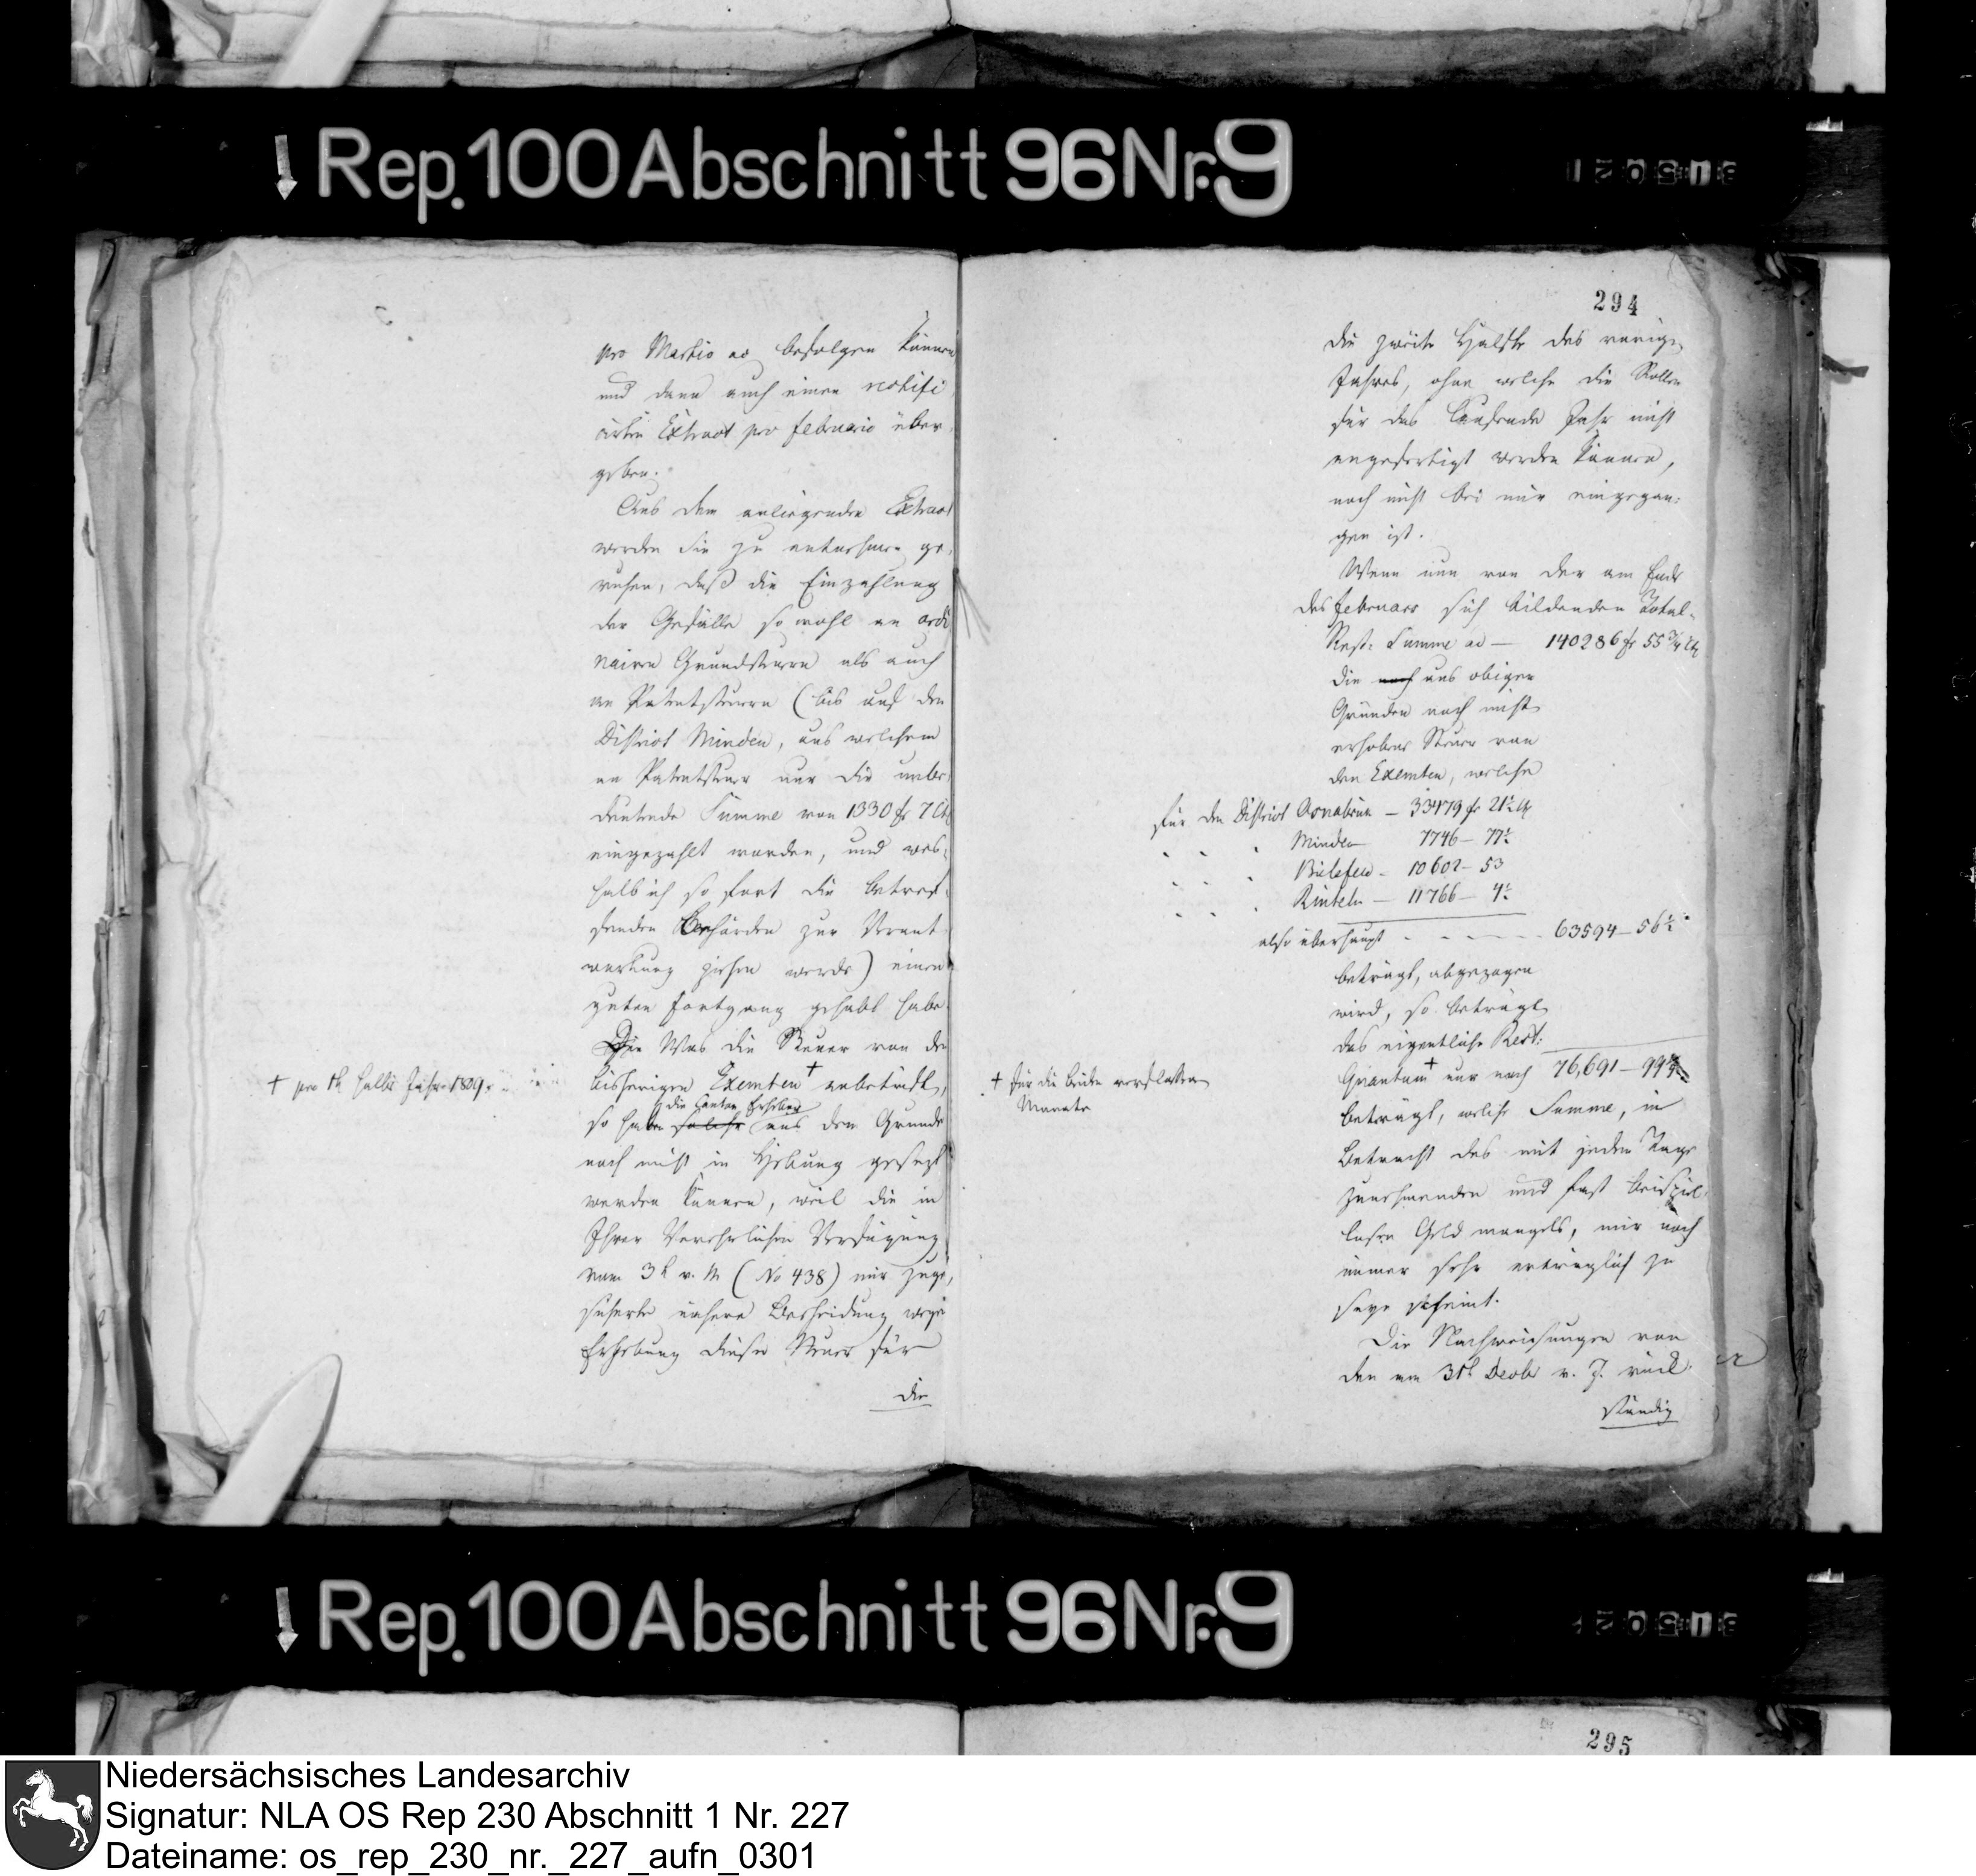 Rep. 100 Abschnitt 96 Nr. 9
pro Martio ac befolgen können
und dann auch einen rectifi
cirten Extract pro februario über
geben.
Aus dem anliegenden Extract
werden Sie zu entnehmen ge,
ruhen, daß die Einzahlung
der Gefälle so wohl an ordi
nairen Grundsteuern als auch
an Patentsteuern (bis auf den
District Minden, aus welchem
an Patentsteuer nur die unbe,
deutende Summe von 1330 fr 7 Ct
eingezahlt worden, und wes-
halb ich so fort die betref-
fenden Behörden zur Verant
wortung ziehen werde) einen
guten Fortgang gehabt habe.
Die Was die Steuer von den
bisherigen Exemten + anbetrifft,
+ pro 1t halbe Jahr 1809.
die Canton Erheber
so haben solche aus dem Grunde
noch nicht in Hebung gesezt
werden können, weil die in
Ihrer Verehrlichen Verfügung
vom 3t v. M (No 438) mir zuge,
sicherte nähere Bescheidung wegen
Erhebung dieser Steuer für
die
294
die zweite Hälfte des vorigen
Jahres, ohne welche die Rollen
für das laufende Jahr nicht
angefertigt werden können,
noch nicht bei mir eingegan:
gen ist.
Wenn nun von der am Ende
des februars sich bildenden Total-
Rest: Summe ad — 140286 fr 55 3/4 Ct
die noch aus obigen
Gründen noch nicht
erhobene Steuer von
den Exemten, welche
für den District Osnabrück — 33479 fr 21½ Ct
Minden 7746 — 77½
Bielefeld — 10602 — 53
Rinteln — 11766 — 4½
also überhaupt - - - - 63594 — 56½
beträgt, abgezogen
wird, so beträgt
das eigentliche Rest:
Quantum + nur noch 76,691 — 99
+ für die beiden verflossenen
Monate
beträgt, welche Summe, in
Betracht des mit jedem Tage
zunehmenden und fast beispiel
losen Geld mangels, mir noch
immer sehr erträglich zu
seyn scheint.
Die Nachweisungen von
den am 31t Decbr v. J. rück
ständig
Rep. 100 Abschnitt 96 Nr. 9
295
Niedersächsisches Landesarchiv
Signatur: NLA OS Rep 230 Abschnitt 1 Nr. 227
Dateiname: os_rep_230_nr._227_aufn_0301